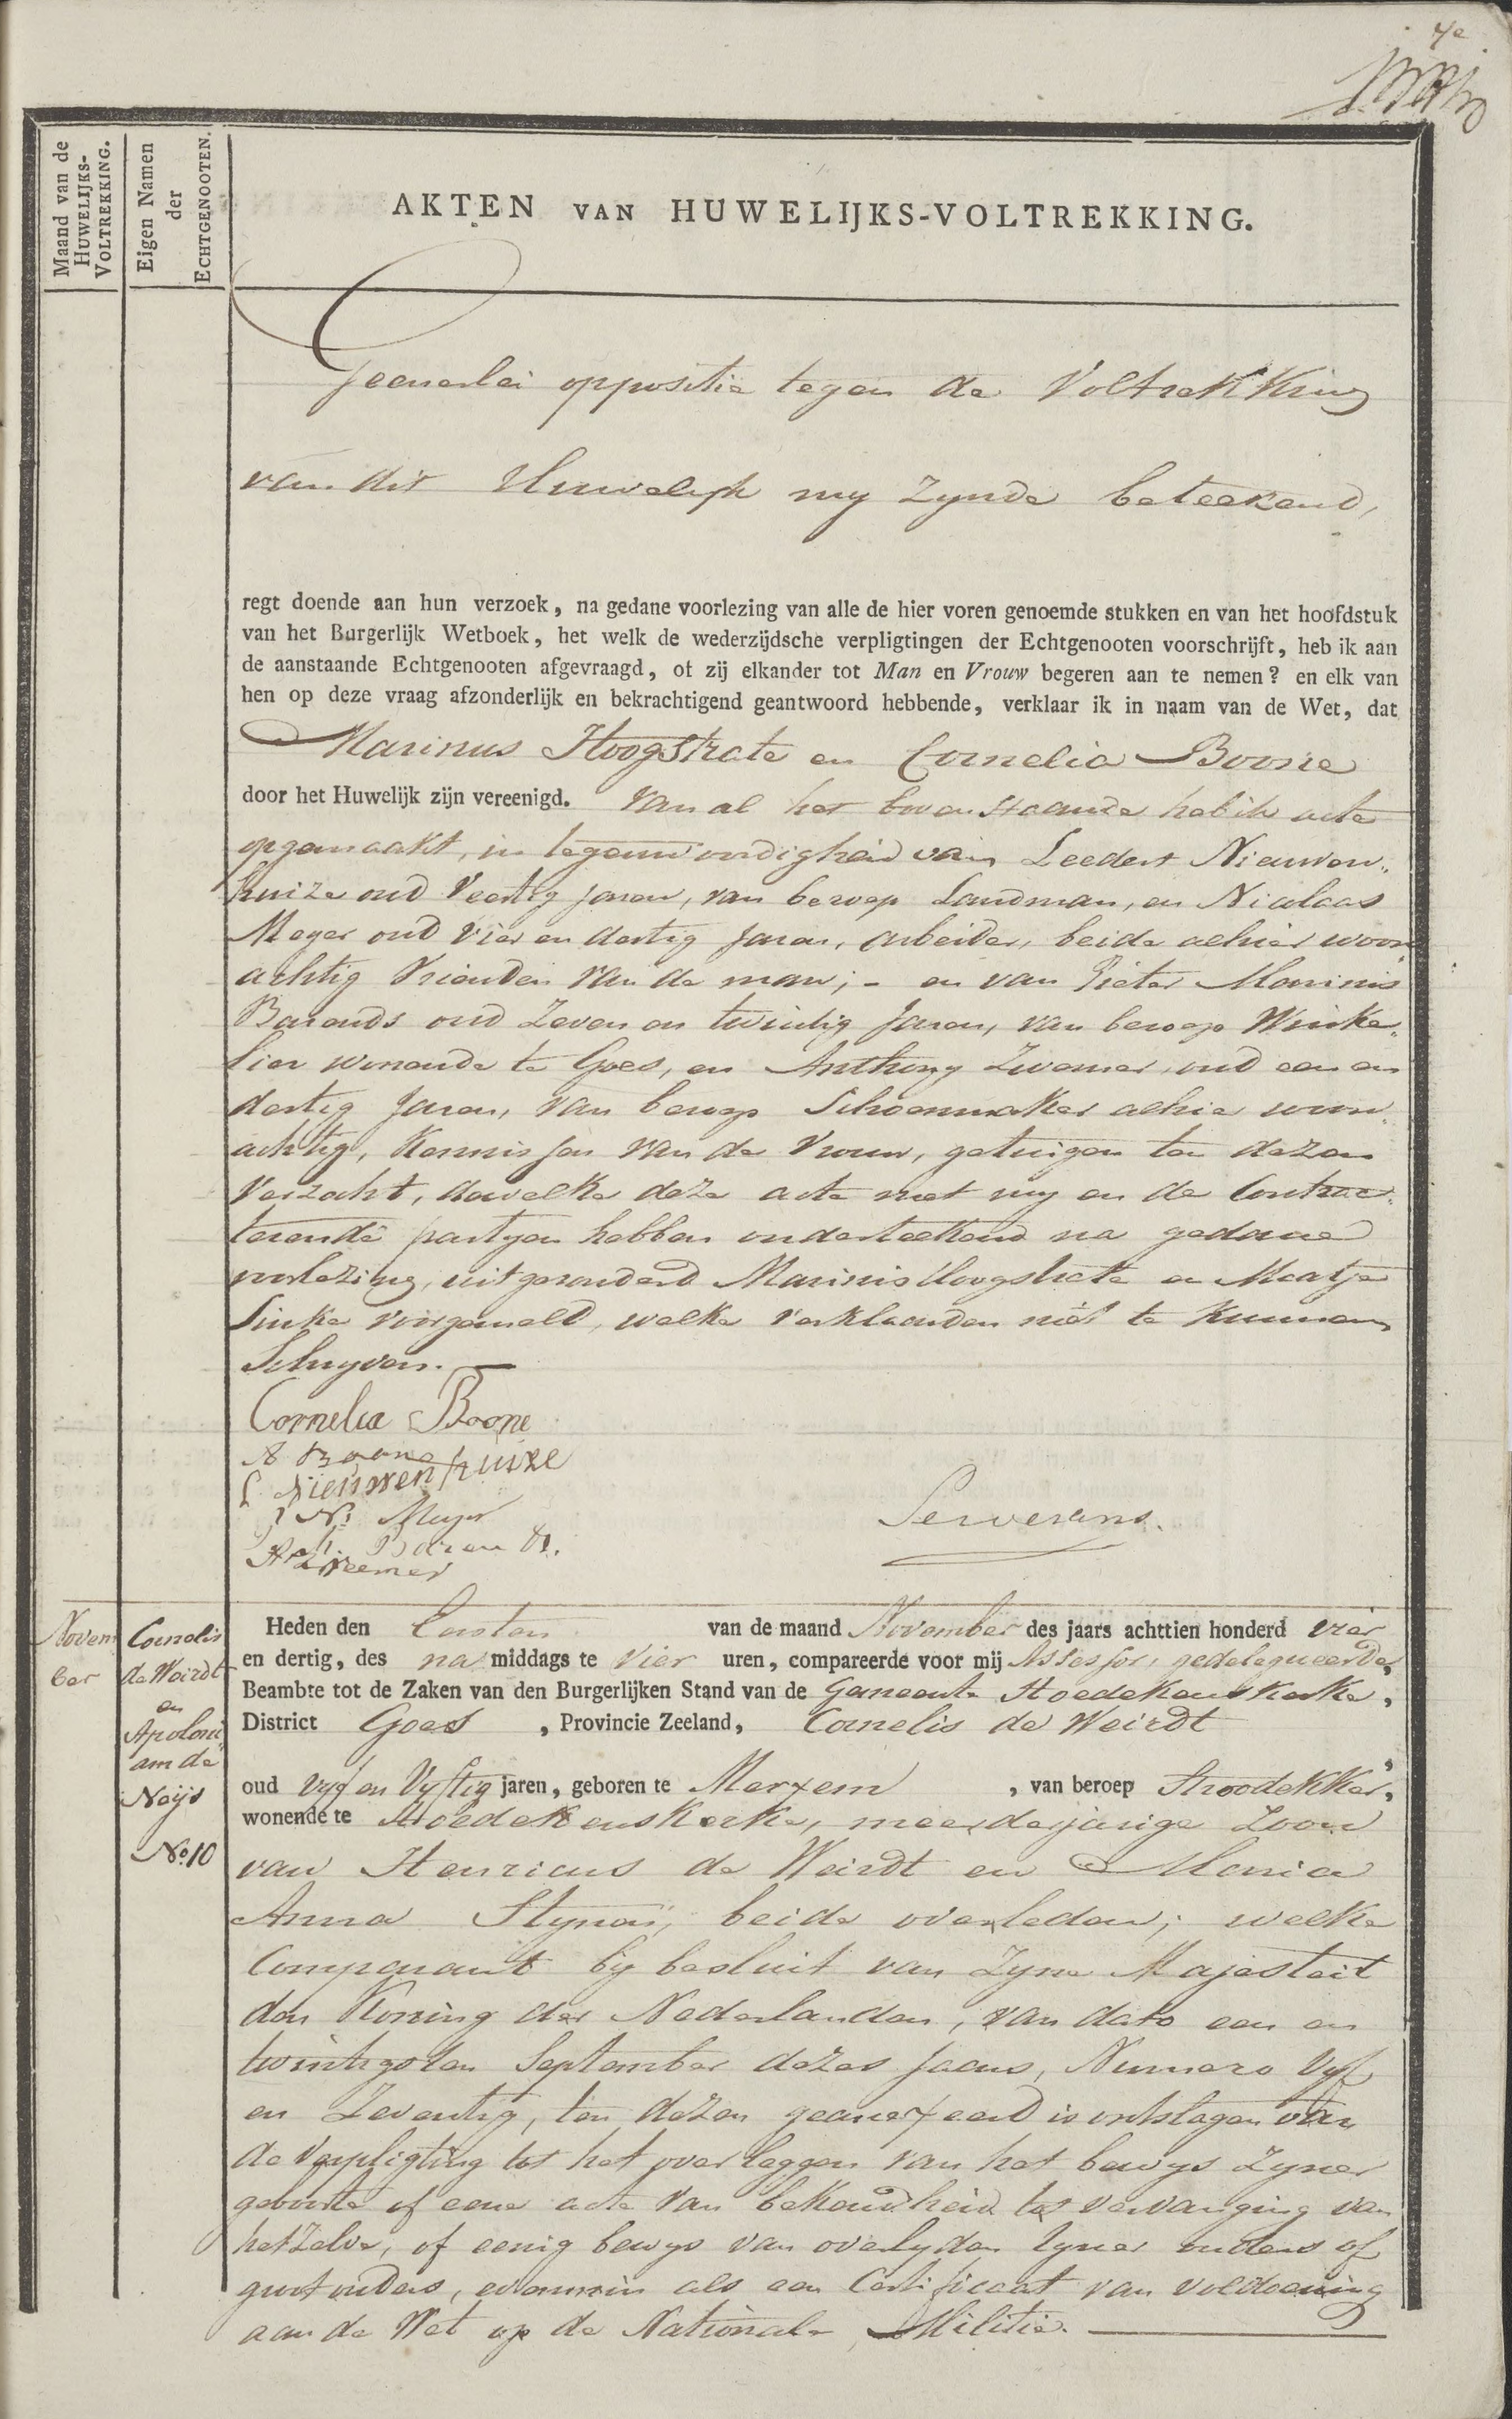 7e
Maand van de
HUWELIJKS-
VOLTREKKING.
Eigen Namen
der
ECHTGENOOTEN.
AKTEN VAN HUWELIJKS-VOLTREKKING.
Geenerlei oppositie tegen de Voltrekking
van dit Huwelyk my Zynde beteekend,
regt doende aan hun verzoek, na gedane voorlezing van alle de hier voren genoemde stukken en van het hoofdstuk
van het Burgerlijk Wetboek, het welk de wederzijdsche verpligtingen der Echtgenooten voorschrijft, heb ik aan
de aanstaande Echtgenooten afgevraagd, of zij elkander tot Man en Vrouw begeren aan te nemen? en elk van
hen op deze vraag afzonderlijk en bekrachtigend geantwoord hebbende, verklaar ik in naam van de Wet, dat
Marinus Hoogstrate en Cornelia Boone
door het Huwelijk zijn vereenigd. Van al het bovenstaande heb ik acte
opgemaakt, in tegenwoordigheid van Leedert Nieuwen„
huize oud Veertig jaren, van beroep Landman, en Nicolaas
Meyer oud Vier en dertig Jaren, arbeider, beide alhier woon
achtig Vrienden van de man; - en van Pieter Marinis
Barends oud Zeven en twintig Jaren, van beroep Winke„
lier wonende te Goes, en Anthony Zweemer, oud een en
dertig Jaren, van beroep Schoenmaker alhier woon„
achtig, Kennissen van de Vrouw, getuigen ten dezen
Verzocht, dewelke deze acte met my en de Contrac„
terende partyen hebben onderteekend na gedane
voorlezing, uitgezonderd Marinis Hoogstrate en Maatje
Sinke voorgemeld, welke Verklaarden niet te Kunnen
Schryven. —
Cornelia Boone
A Boone
L. Nieuwenhuize
N. Meyer
Barends.
A Zweemer
Serverans.
Novem
ber
Cornelis
de Weirdt
en
Apoloni„
am de
Neijs
No. 10
Heden den Eersten van de maand November des jaars achttien honderd vier
en dertig, des na middags te Vier uren, compareerde voor mij Assessor, gedelegueerde
Beambte tot de Zaken van den Burgerlijken Stand van de Gemeente Hoedekenskerke,
District Goes, Provincie Zeeland, Cornelis de Weirdt
oud Vyf en Vyftig jaren, geboren te Merxem, van beroep Stroodekker,
wonende te Hoedekenskerke, meerderjarige Zoon
van Henricus de Weirdt en Maria
Anna Stynen, beide overleden; welke
Comparant by besluit van Zyne Majesteit
den Koning der Nederlanden, van dato een en
twintigsten September dezes Jaars, Numero Vyf
en Zeventig, ten dezen geannexeerd is ontslagen van
de Verpligting tot het overleggen van het bewys Zyner
geboorte of eene acte van bekendheid tot vervanging van
hetzelve, of eenig bewys van overlyden Zyner ouders of
grootouders, evenmin als een Certificaat van voldoening
aan de Wet op de Nationale Militie.